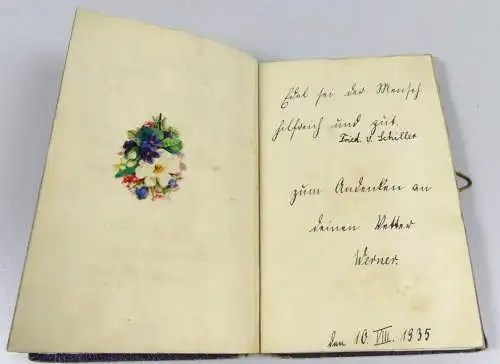 Edel sei der Mensch
hilfreich und gut.
Fried. v. Schiller
zum Andenken an
deinen Vetter
Werner.
den 10. VIII. 1935